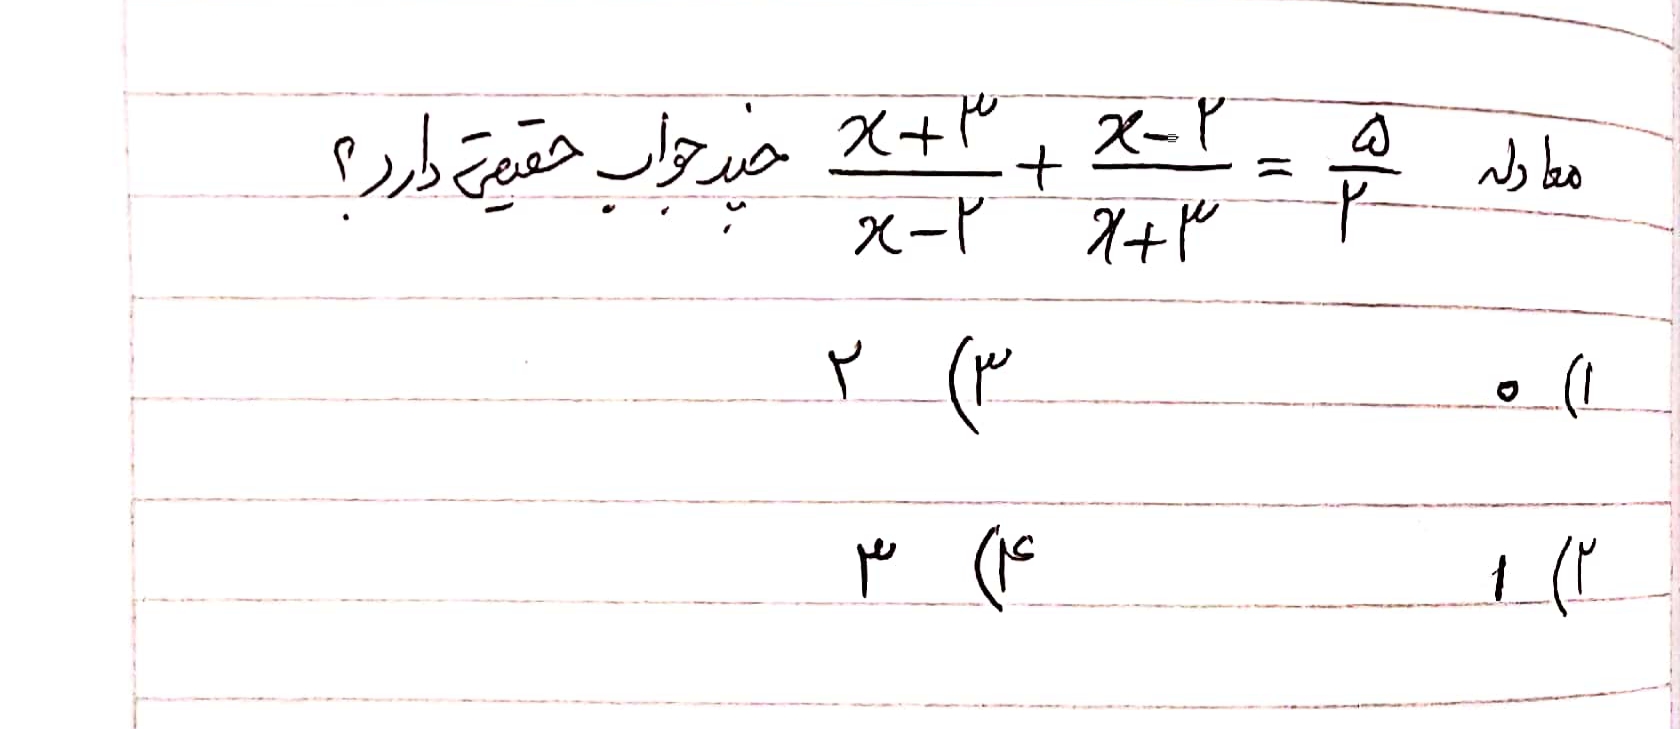 معادله (x+۳)/(x-۲) + (x-۲)/(x+۳) = ۵/۲ چند جواب حقیقی دارد؟
۱) ۰ ۳) ۲
۲) ۱ ۴) ۳